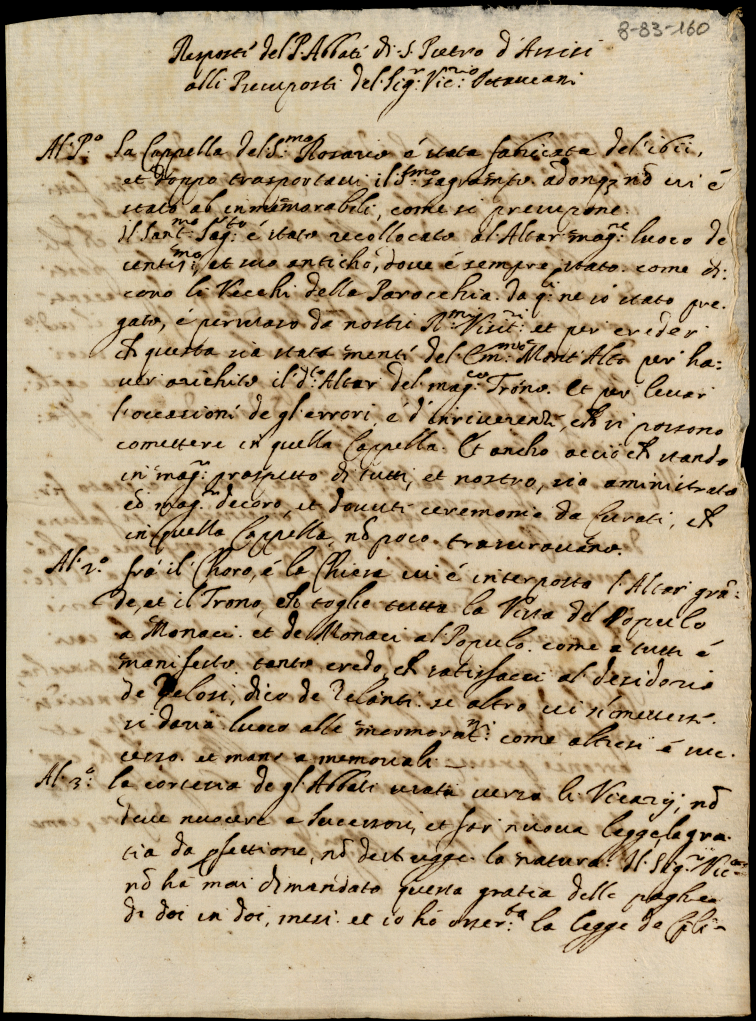 8-83-160
Resposti del P. Abbati di S. Pietro d'Assisi
alli Presuposti del Sig.r Vic.rio Ottaviani
Al P.o La Cappella del S.mo Rosario è stata fabricata del 1611,
et doppo trasportatovi il S.mo sagramento adonq3 nō vi è
stato ab immemorabili, come si presupone.
Il Sant.mo Sag.to è stato recollocato al Altar mag.re luoco de
centis.mo et suo anticho, dove è sempre stato. come di-
cono li Vecchi della Parocchia. da q.li ne io stato pre-
gato, è persuaso da nostri R.mi Visit.ri et per creder
ch questa sia stata menti del Em.mo Mont'Alto per ha-
ver arichito il d.o Altar del mag.co Trono. Et per levar
l'occasioni de gl'errori, è d'inriverenti, ch si possono
comettere in quella Cappella. Et ancho acciò ch stando
in mag.r prospetto di tutti, et nostro, sia aministrato
cō mag.r decoro, et dovuti ceremonie da Curati, ch
in quella Cappella, nō poco trascuravano.
Al 2.o frà il Choro, è la Chiesa vi è interposto l'Altar grā-
de, et il Trono, ch toglie tutta la Vista del Populo
a Monaci. et de Monaci al Populo. come a tutti è
manifesto tanto credo ch satisfacci al desiderio
de Zelosi, dico de Zelanti. se altro vi si mettessi.
si daria luoco alle mormorat.ni come altresi è suc-
cesso. et mand a memoriali
Al 3.o la cortesia de gl'Abbati usata verso li Vicarij, nō
deve nuocere a Successori, et far nuova legge la gra-
tia da pfettione, nō destrugge la natura. Il Sig.r Vic.rio
nō hà mai dimandato questa gratia delle paghe
di doi in doi, mesi. et io hò osser.ta la legge de